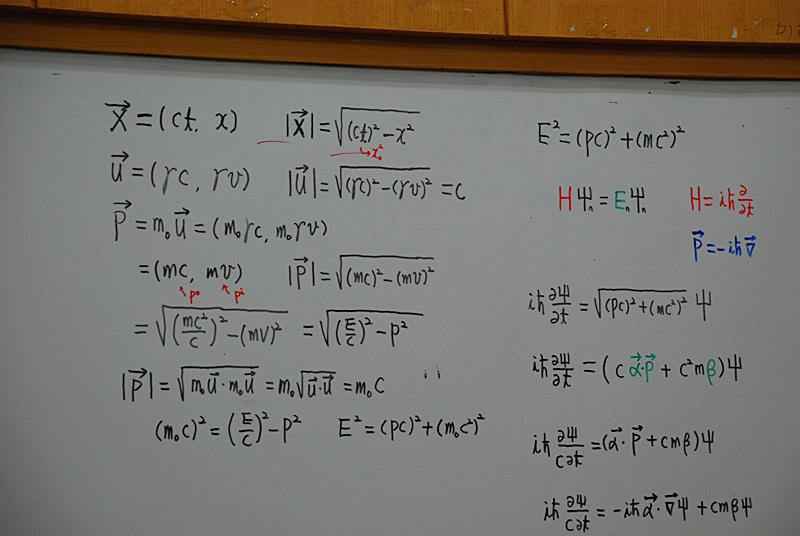 x⃗ = (ct, x)  |x⃗| = √((ct)² − x²)
→ x₀²
u⃗ = (γc, γv)  |u⃗| = √((γc)² − (γv)²) = c
p⃗ = m₀u⃗ = (m₀γc, m₀γv)
= (mc, mv)  |p⃗| = √((mc)² − (mv)²)
↖p⁰ ↖p²
= √((mc²/c)² − (mv)²) = √((E/c)² − p²)
|p⃗| = √(m₀u⃗·m₀u⃗) = m₀√(u⃗·u⃗) = m₀c
(m₀c)² = (E/c)² − p²  E² = (pc)² + (m₀c²)²
E² = (pc)² + (mc²)²
HΨₙ = EₙΨₙ  H = iħ ∂/∂t
p⃗ = −iħ∇⃗
iħ ∂Ψ/∂t = √((pc)² + (mc²)²) Ψ
iħ ∂Ψ/∂t = (c α⃗·p⃗ + c²mβ)Ψ
iħ ∂Ψ/c∂t = (α⃗·p⃗ + cmβ)Ψ
iħ ∂Ψ/c∂t = −iħα⃗·∇⃗Ψ + cmβΨ